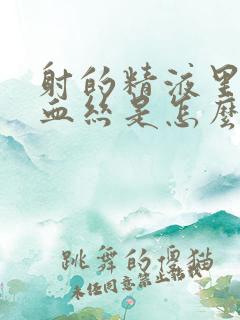 射的精液里
血丝是怎么
跳舞的僵猫
未经同意禁止转载